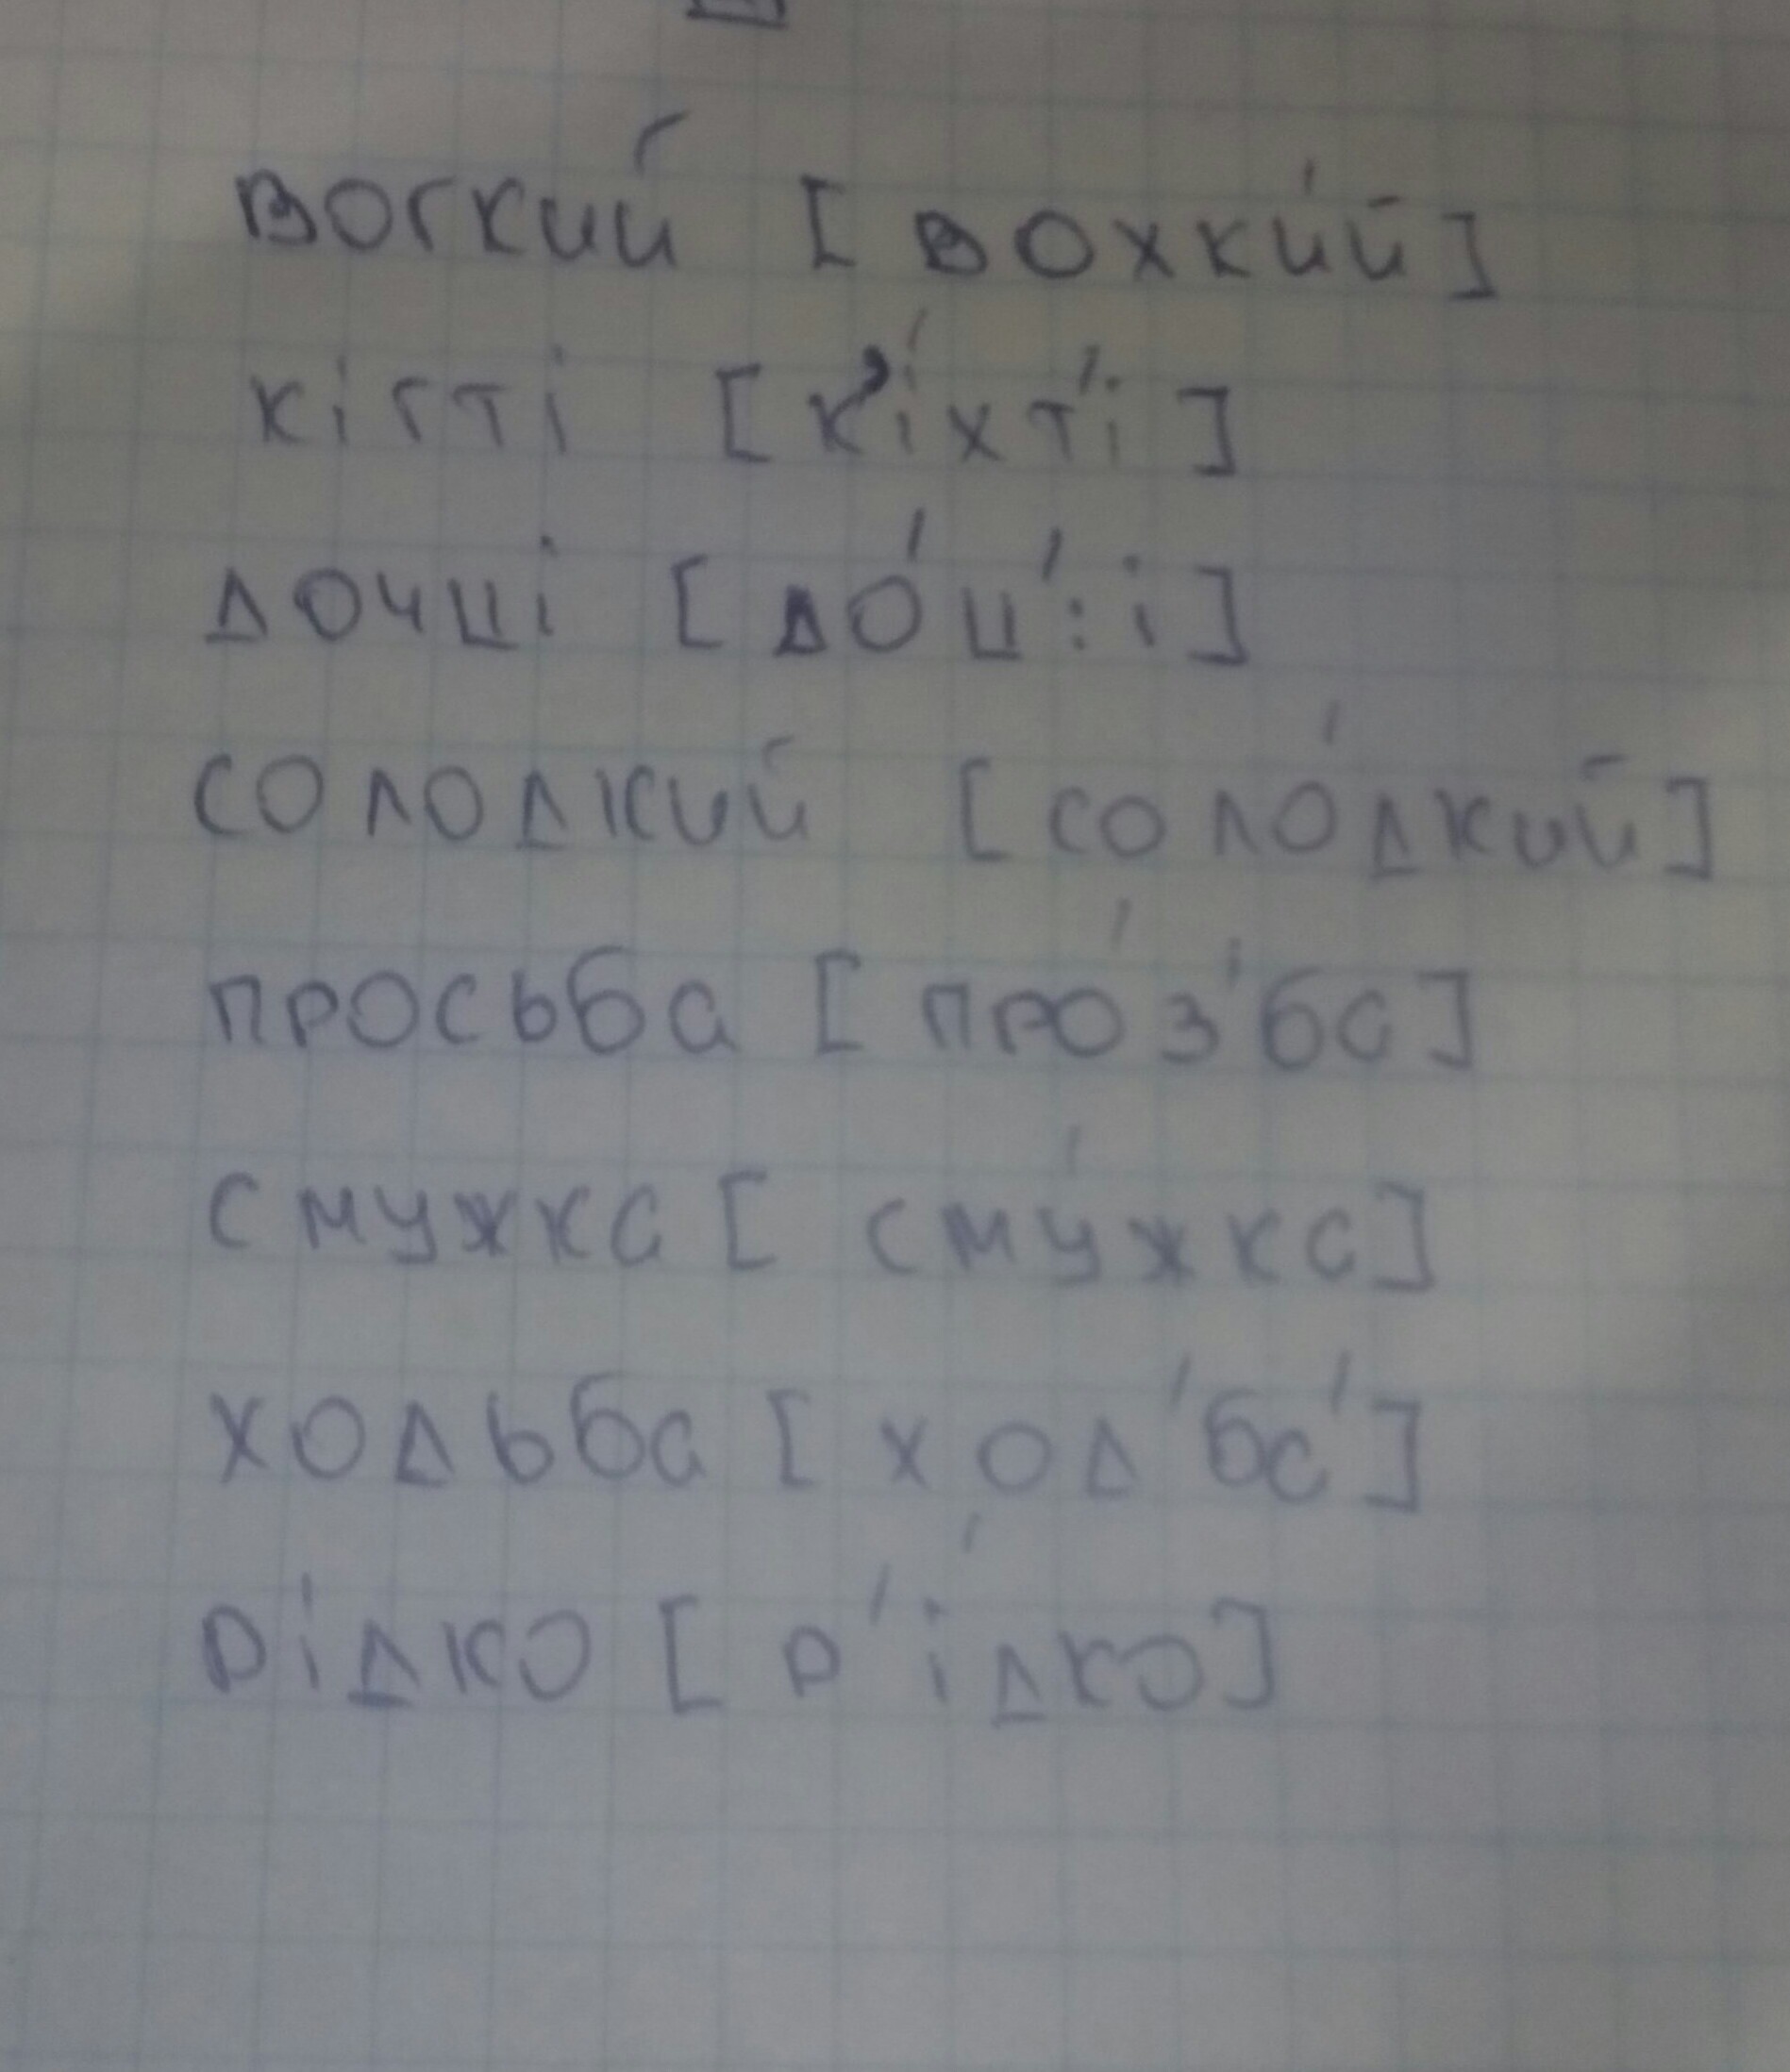 вогкий [вохки́й]
кігті [к'і́хт'і]
дочці [до́ц':і]
солодкий [соло́дкий]
просьба [про́з'ба]
смужка [сму́жка]
ходьба [ход'ба́]
рідко [р'і́дко]